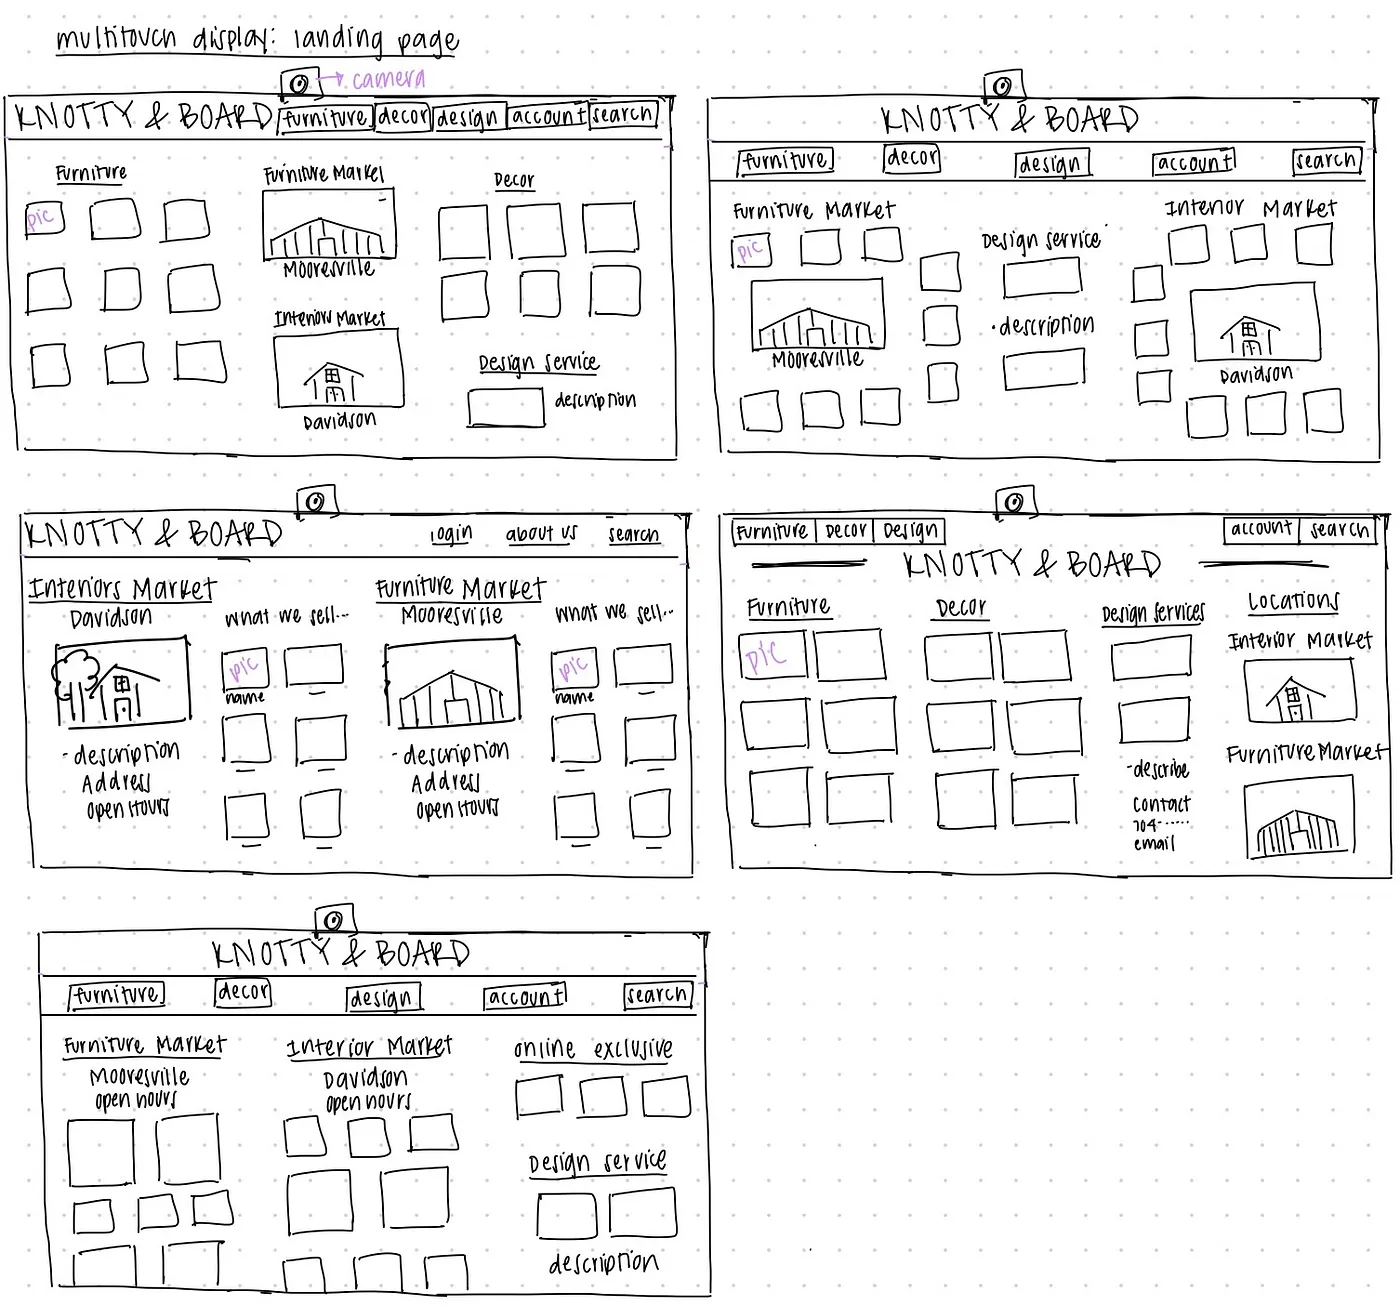 multitouch display: landing page
camera
KNOTTY & BOARD furniture decor design account search
Furniture
pic
Furniture Market
Mooresville
Interiors Market
Davidson
Decor
Design service
description
KNOTTY & BOARD
furniture decor design account search
Furniture Market
pic
Mooresville
Design service
·description
Interior Market
Davidson
KNOTTY & BOARD login about us search
Interiors Market
Davidson
what we sell...
pic
name
-description
Address
open Hours
Furniture Market
Mooresville
what we sell...
pic
name
-description
Address
open Hours
Furniture Decor Design account search
KNOTTY & BOARD
Furniture
pic
Decor
Design services
-describe
contact
704------
email
Locations
Interior Market
Furniture Market
KNOTTY & BOARD
furniture decor design account search
Furniture Market
Mooresville
open hours
Interior Market
Davidson
open hours
online exclusive
Design service
description